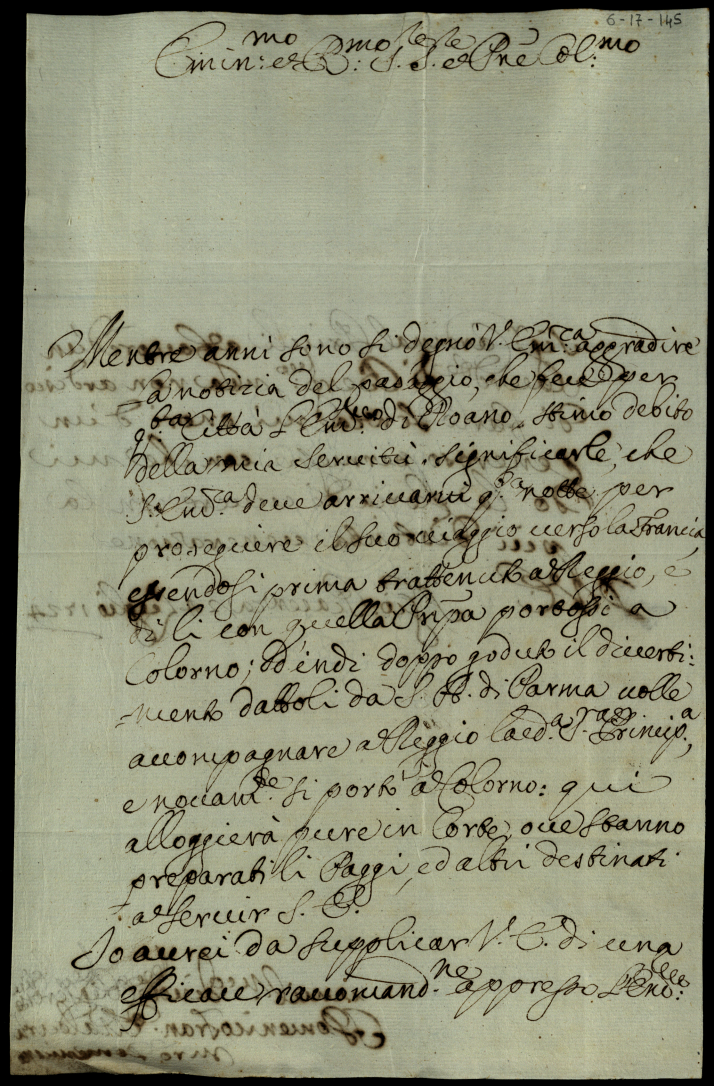 6-17-145
Emin:mo et R:mo S.re S.re et Pne Col:mo
Mentre anni sono si degnò V. Em.ca aggradire
la notizia del passaggio, che fece per
q.ta Città l'Em.mo di Roano, stimo debito
della mia servitù significarle, che
S. Em.ca deve arrivarvi q.ta notte per
proseguire il suo viaggio verso la Francia,
essendosi prima trattenuto a Reggio, e
di li con quella Prñpa portossi a
Colorno; ed indi doppo goduto il diverti:
mento dattoli da S. A. di Parma volle
accompagnare a Reggio la ed.a S.ra Princip.a,
e novam.te si portò a Colorno: qui
alloggierà pure in Corte, ove stanno
preparati li Paggi, ed altri destinati
a servir S. E.
Io avrei da supplicar V. E. di una
efficace raccomand.ne appresso l'Em: